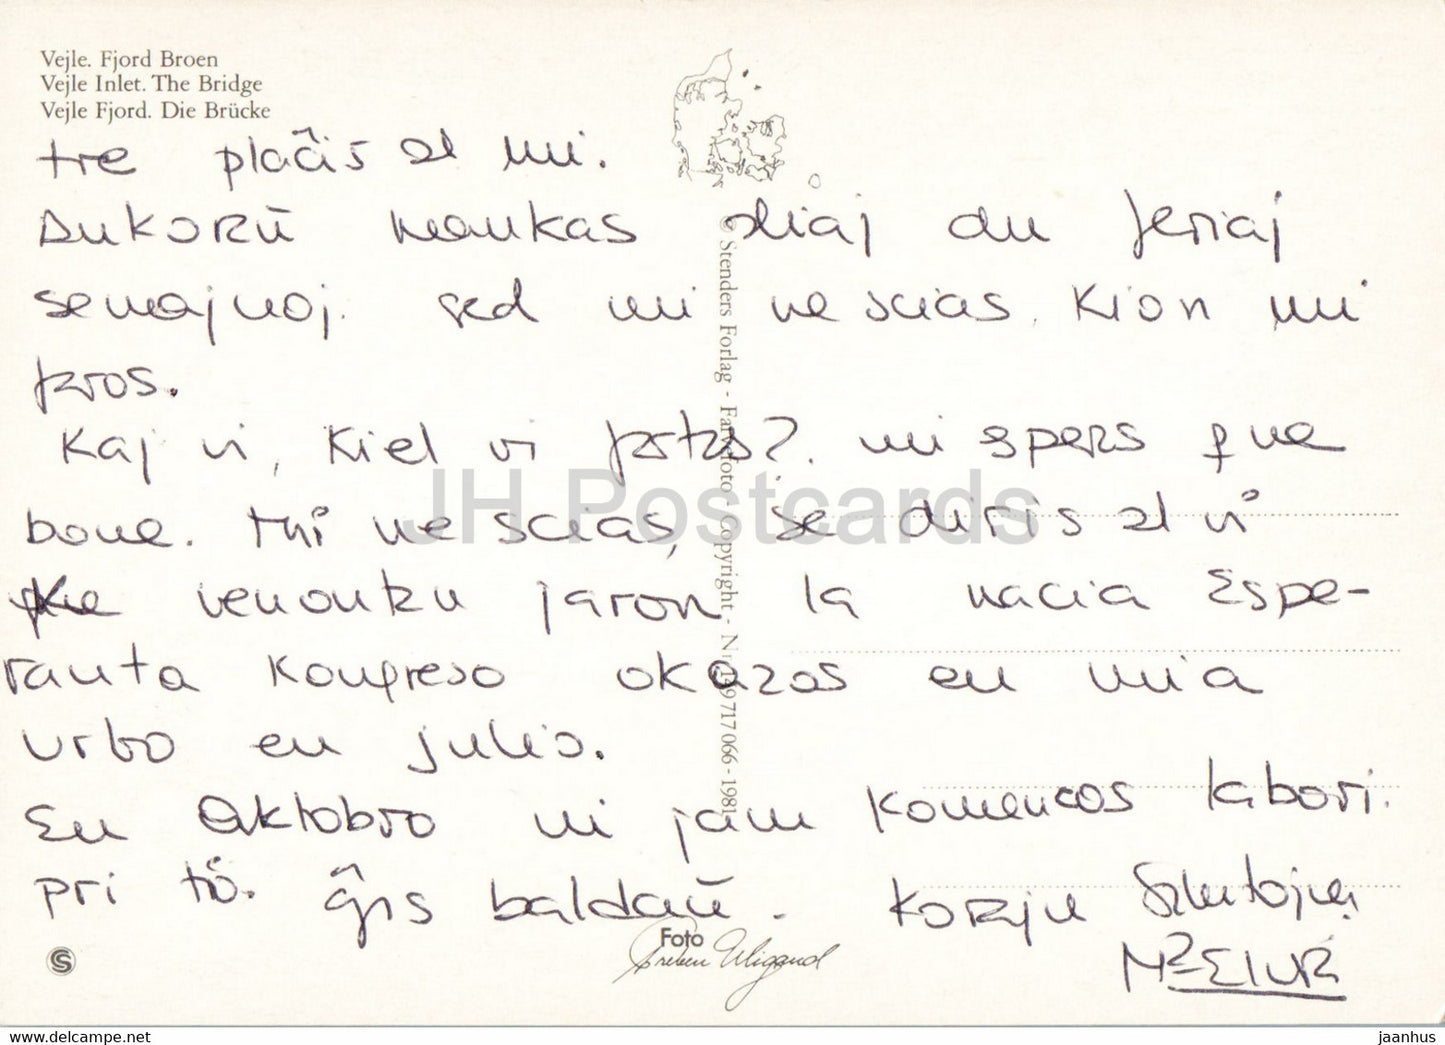 Vejle. Fjord Broen
Vejle Inlet. The Bridge
Vejle Fjord. Die Brücke
tre plaĉis al mi.
mankas du feriaj
semajnoj. sed mi ne scias. Kion mi
faros.
Kaj vi, Kiel vi fartas? mi esperas ke ne
bone. Mi ne scias, se diris al vi
ke venontan jaron la nacia Espe-
ranta Kongreso okazos en mia
urbo en julio.
En Oktobro mi jam Komencos labori.
pri tio. ĝis baldaŭ. Korajn Salutojn
© Stenders Forlag - Farvefoto - Copyright - Nr. 9717 066 - 1981
Foto
Preben Wiggand
S
JH Postcards
www.delcampe.net
jaanhus